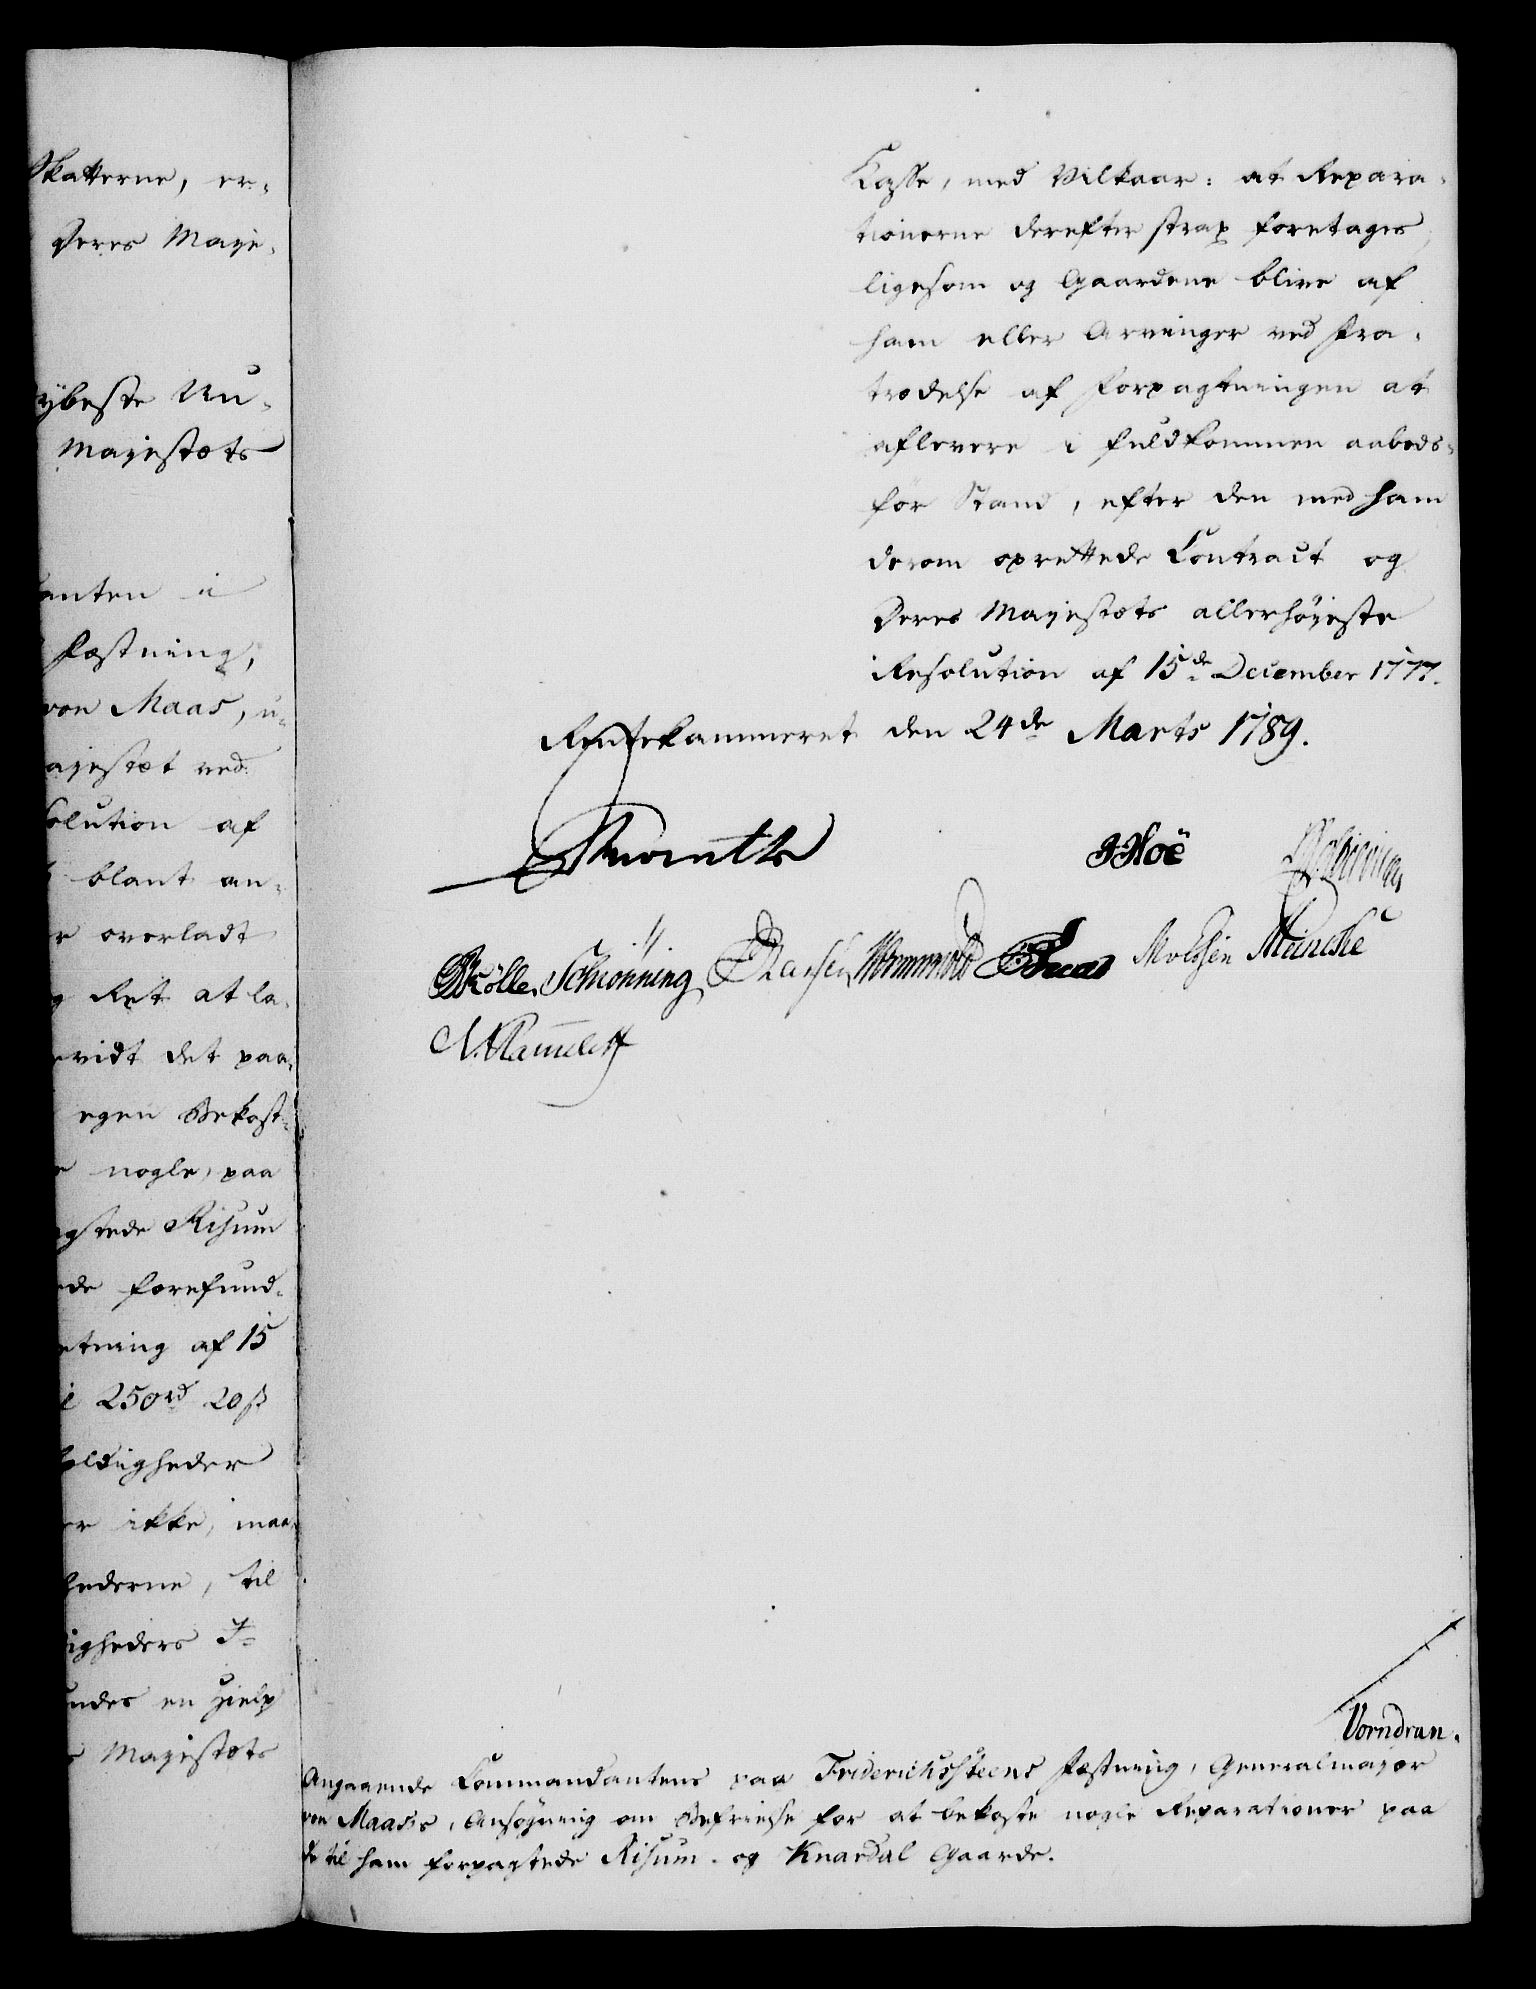 Skatterne, er-
Deres Maje-
ybeste Un-
Majestæts
anten i
Fæstning,
von Maas, u-
ajestæt ved
solution af
blant an-
r overladt
g Ret at la-
vidt det paa-
egen Bekost-
e nogle, paa
gtede Risum
ede forefund-
etning af 15
i 250 rd 20 ß
oldigheder
er ikke, maa
hederne, til
igheders I-
undes en Hielp
s Majestæts
Kasse, med Vilkaar: at Repara-
tionerne derefter strax foretages,
ligesom og Gaardene blive af
ham eller Arvinger ved Fra-
trædelse af Forpagtningen at
aflevere i fuldkommen aabods-
før Stand, efter den med ham
derom oprettede Contract og
Deres Majestæts allerhøjeste
Resolution af 15de December 1777.
Rentekammeret den 24de Marts 1789.
JHoë
Schiønning
Wormskiold
Meinche
N. Rammeleff
Vorndran.
Angaaende Commandantens paa Friderichssteens Fæstning, Generalmajor
von Maas's, Ansøgning om Befrielse for at bekoste nogle Reparationer paa
de til ham forpagtede Risum- og Knardal Gaarde.